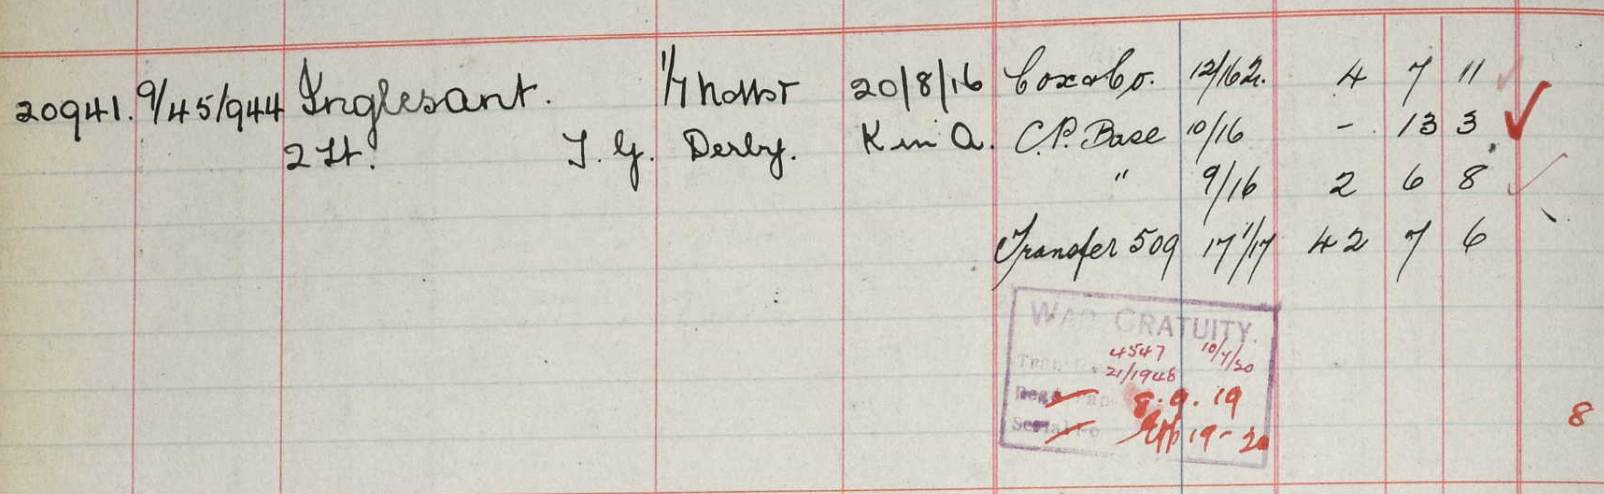 20941. 9/45/944 Inglesant. 1/7 Notts & 20/8/16 Cox & Co. 12/16 4 7 11
2 Lt. T. G. Derby. K in A. C.P. Base 10/16 - 13 3
" 9/16 2 6 8
Transfer 509 17/1/17 42 7 6
WAR GRATUITY.
4547
21/1948
8.9.19
19-20
8